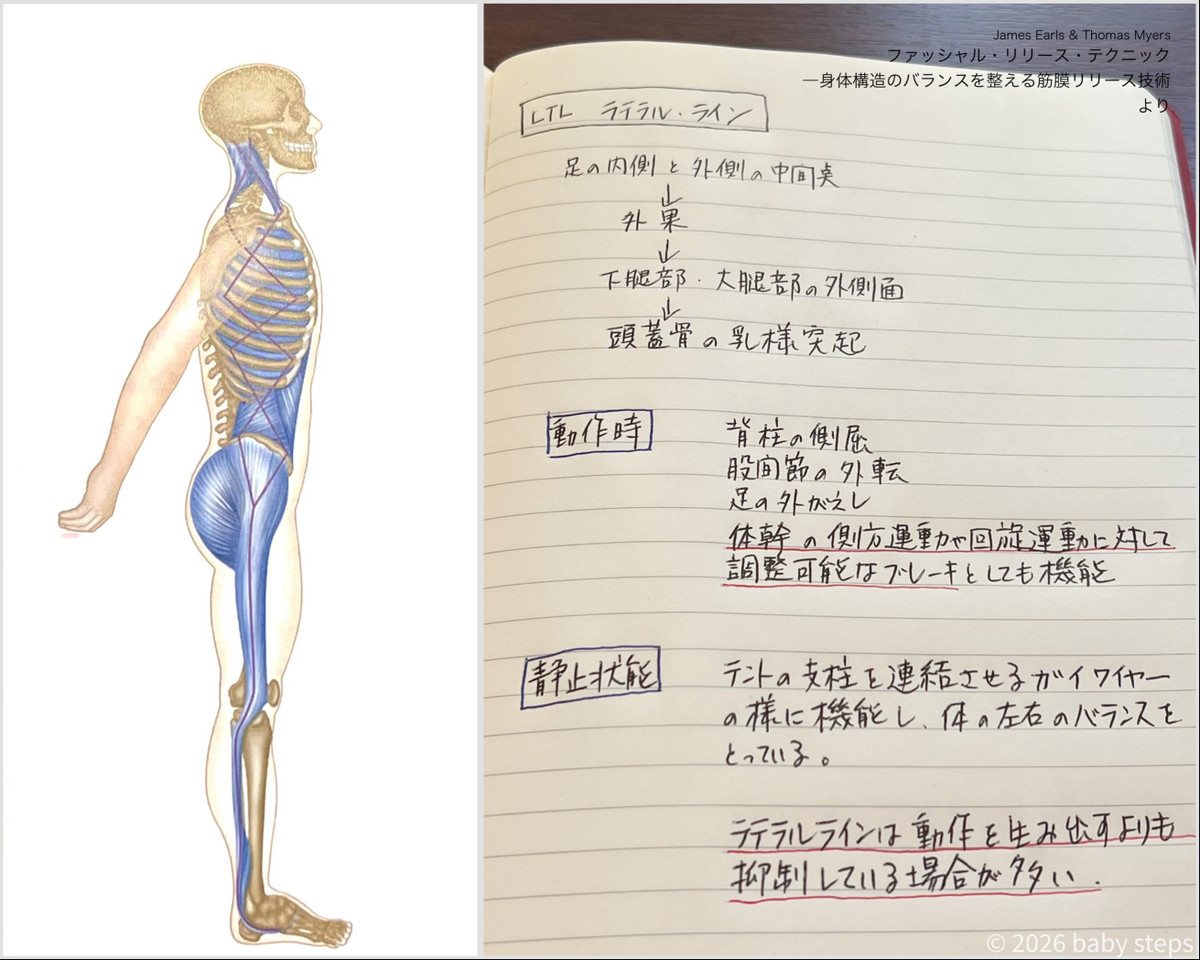 James Earls & Thomas Myers
ファッシャル・リリース・テクニック
―身体構造のバランスを整える筋膜リリース技術
より
LTL ラテラル・ライン
足の内側と外側の中間点
↓
外果
↓
下腿部・大腿部の外側面
↓
頭蓋骨の乳様突起
動作時
背柱の側屈
股間節の外転
足の外がえし
体幹の側方運動や回旋運動に対して
調整可能なブレーキとしても機能
静止状態
テントの支柱を連結させるガイワイヤー
の様に機能し、体の左右のバランスを
とっている。
ラテラルラインは動作を生み出すよりも
抑制している場合が多い.
© 2026 baby steps